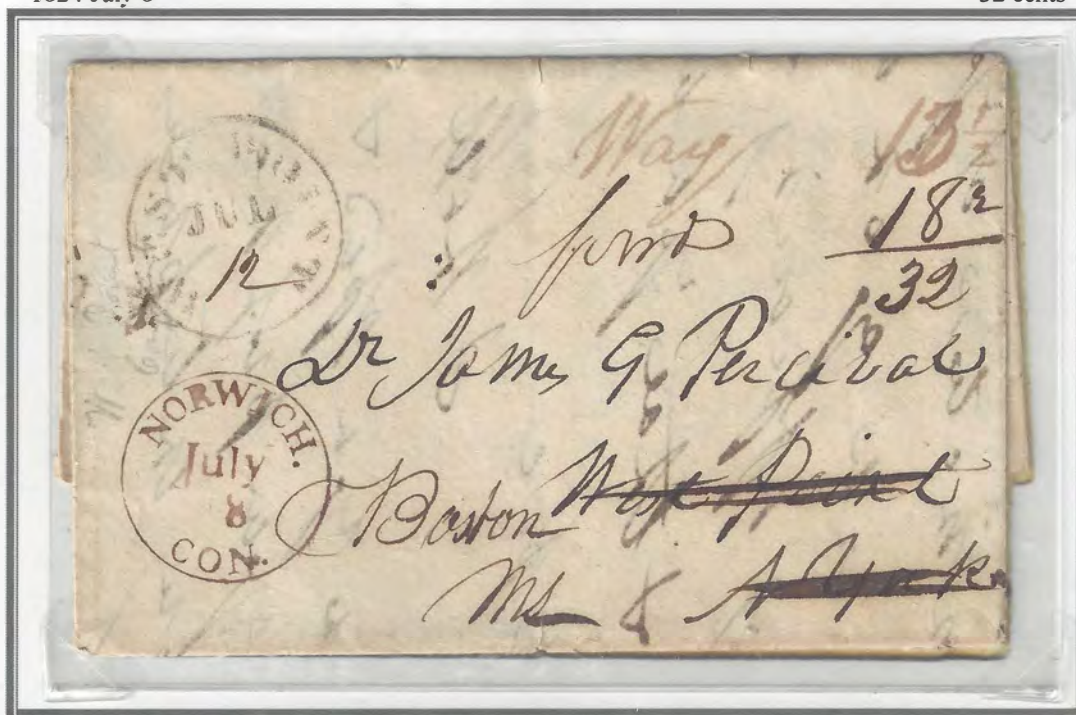 32 cents
WEST POINT
JUL
12
Way 13 1/2
forwd 18 2
32
Dr James G Percival
NORWICH.
July
8
CON.
Boston West Point
Ms N York